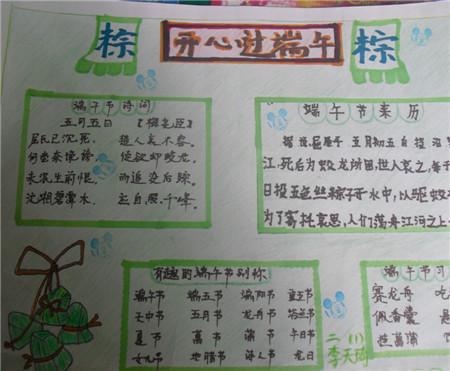 粽 开心过端午 粽
端午节诗词
五月五日 【梅尧臣】
屈氏已沉死， 楚人哀不容。
何尝奈谗谤， 徒欲却蛟龙。
未泯生前恨， 而追没后踪。
沅湘碧潭水， 应自照千峰。
端午节来历
据说屈原于五月初五自投汨
江，死后为蛟龙所困，世人哀之，每于
日投五色丝粽子于水中，以驱蛟
为了寄托哀思，人们荡舟江河之上
有趣的端午节别称
端午节 端五节 端阳节 重五节
天中节 五月节 龙舟节 浴兰节
夏节 菖节 蒲节 午日节
女儿节 地腊节 诗人节 龙日
端午节习
赛龙舟 吃
佩香囊 悬
挂菖蒲
二（1）
李天琦